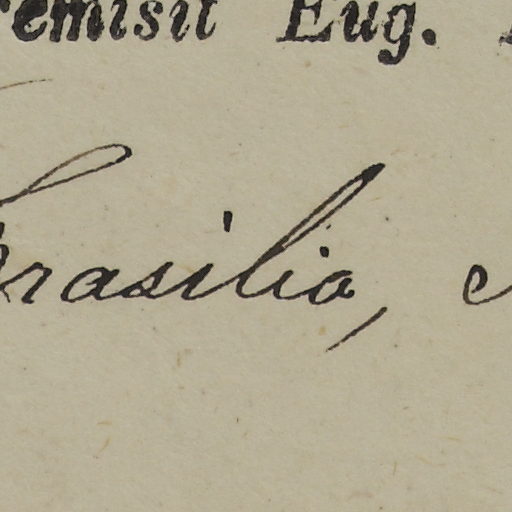 remisit Eug.
Brasilia,